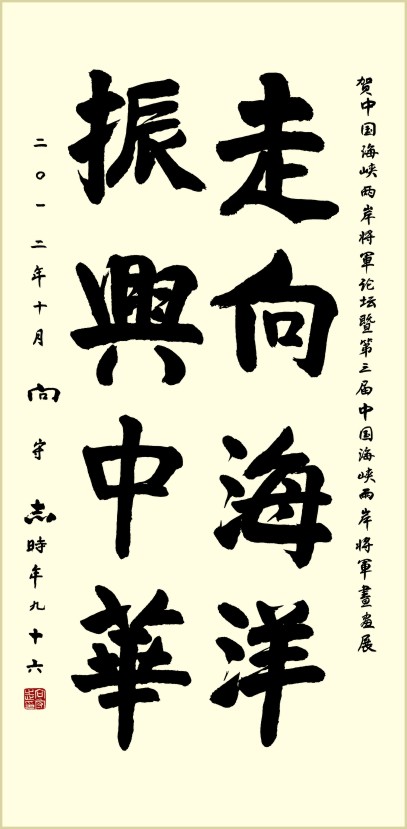 贺中国海峡两岸将軍论坛暨第三届中国海峡两岸将軍書画展
走向海洋
振興中華
二〇一二年十月向守志時年九十六